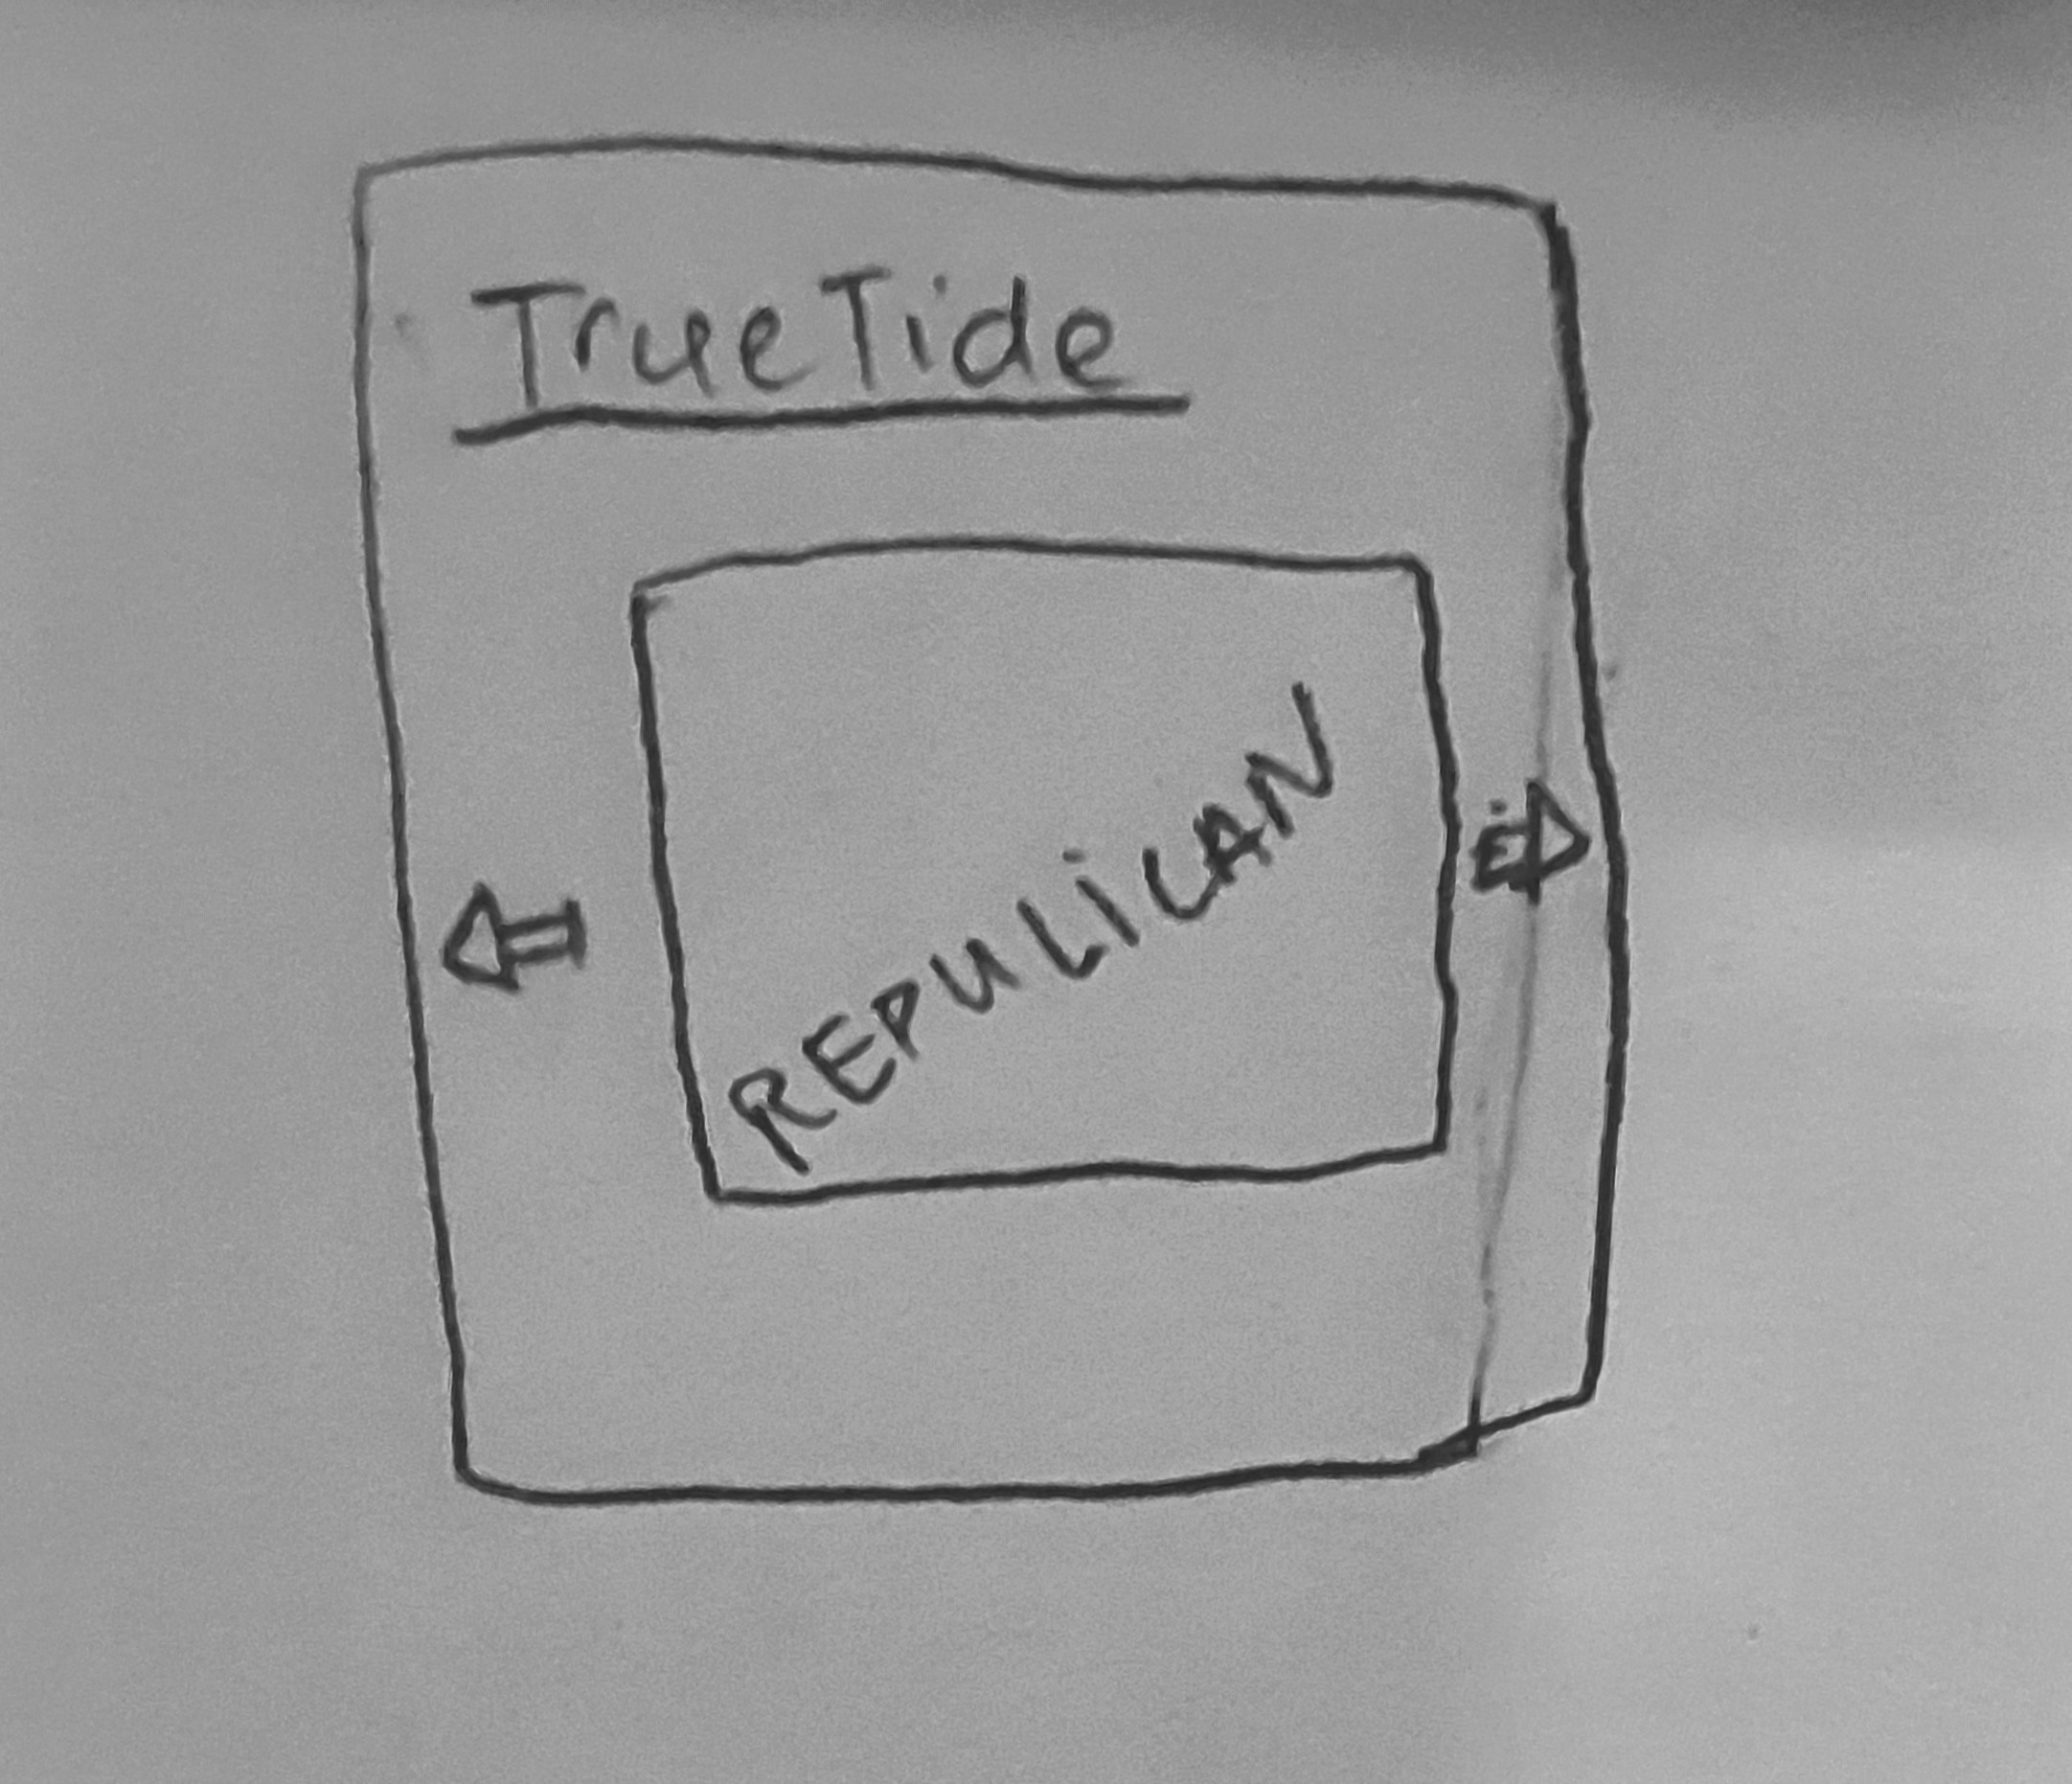 TrueTide
REPULICAN